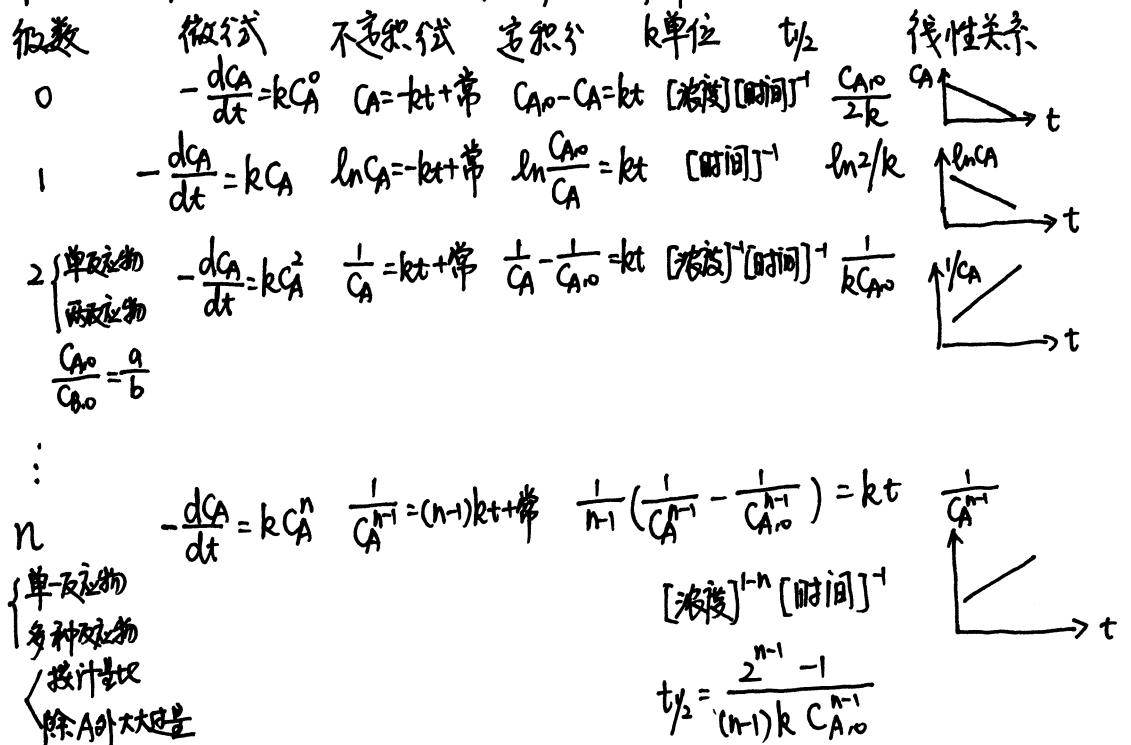 级数 微分式 不定积分式 定积分 k单位 t1/2 线性关系
0 -dCA/dt=kCA^0 CA=-kt+常 CA,0-CA=kt [浓度][时间]^-1 CA,0/2k CA t
1 -dCA/dt=kCA lnCA=-kt+常 ln CA,0/CA=kt [时间]^-1 ln2/k lnCA t
2 { 单反应物 -dCA/dt=kCA^2 1/CA=kt+常 1/CA-1/CA,0=kt [浓度]^-1[时间]^-1 1/kCA,0 1/CA t
两反应物
CA,0/CB,0=a/b
⋮
n -dCA/dt=kCA^n 1/CA^n-1=(n-1)kt+常 1/n-1(1/CA^n-1 - 1/CA,0^n-1)=kt 1/CA^n-1 t
{ 单一反应物 [浓度]^1-n[时间]^-1
多种反应物
按计量比 t1/2=2^n-1 -1/(n-1)k CA,0^n-1
除A外大大过量